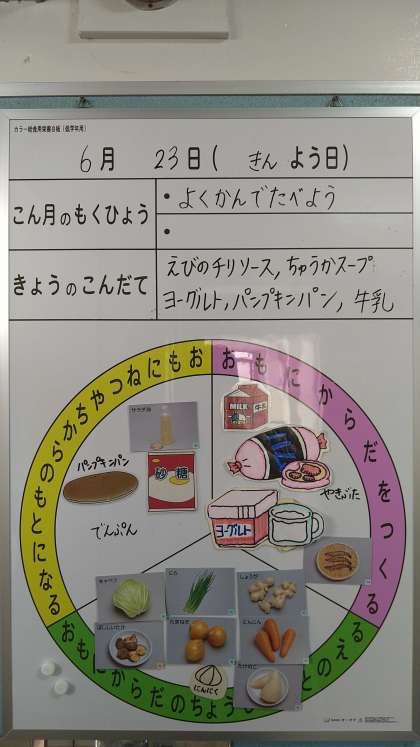 カラー給食用栄養白板(低学年用)
6月 23日(きんよう日)
こん月のもくひょう
・よくかんでたべよう
・
きょうのこんだて
えびのチリソース,ちゅうかスープ
ヨーグルト,パンプキンパン,牛乳
おもにねつやちからのもとになる
おもにからだをつくる
サラダ油
MILK
牛乳
パンプキンパン
砂糖
やきぶた
でんぷん
ヨーグルト
キャベツ
にら
しょうが
ほししいたけ
たまねぎ
にんじん
にんにく
たけのこ